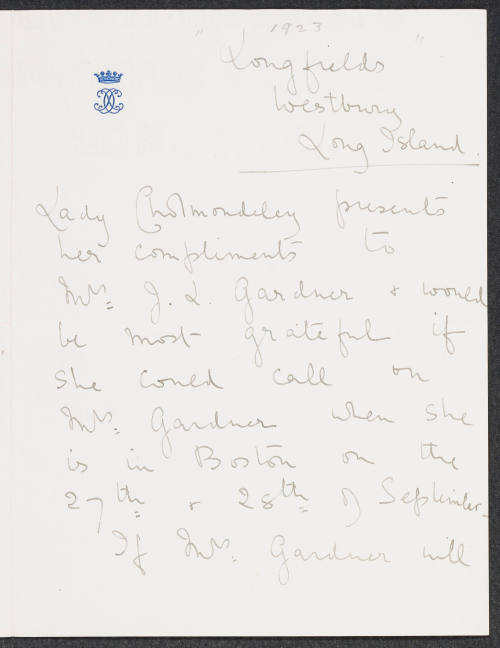 1923
" Longfields "
Westbury
Long Island.
Lady Cholmondeley presents
her compliments to
Mrs. J. L. Gardner & would
be most grateful if
she could call on
Mrs. Gardner when she
is in Boston on the
27th & 28th of September.
If Mrs. Gardner will